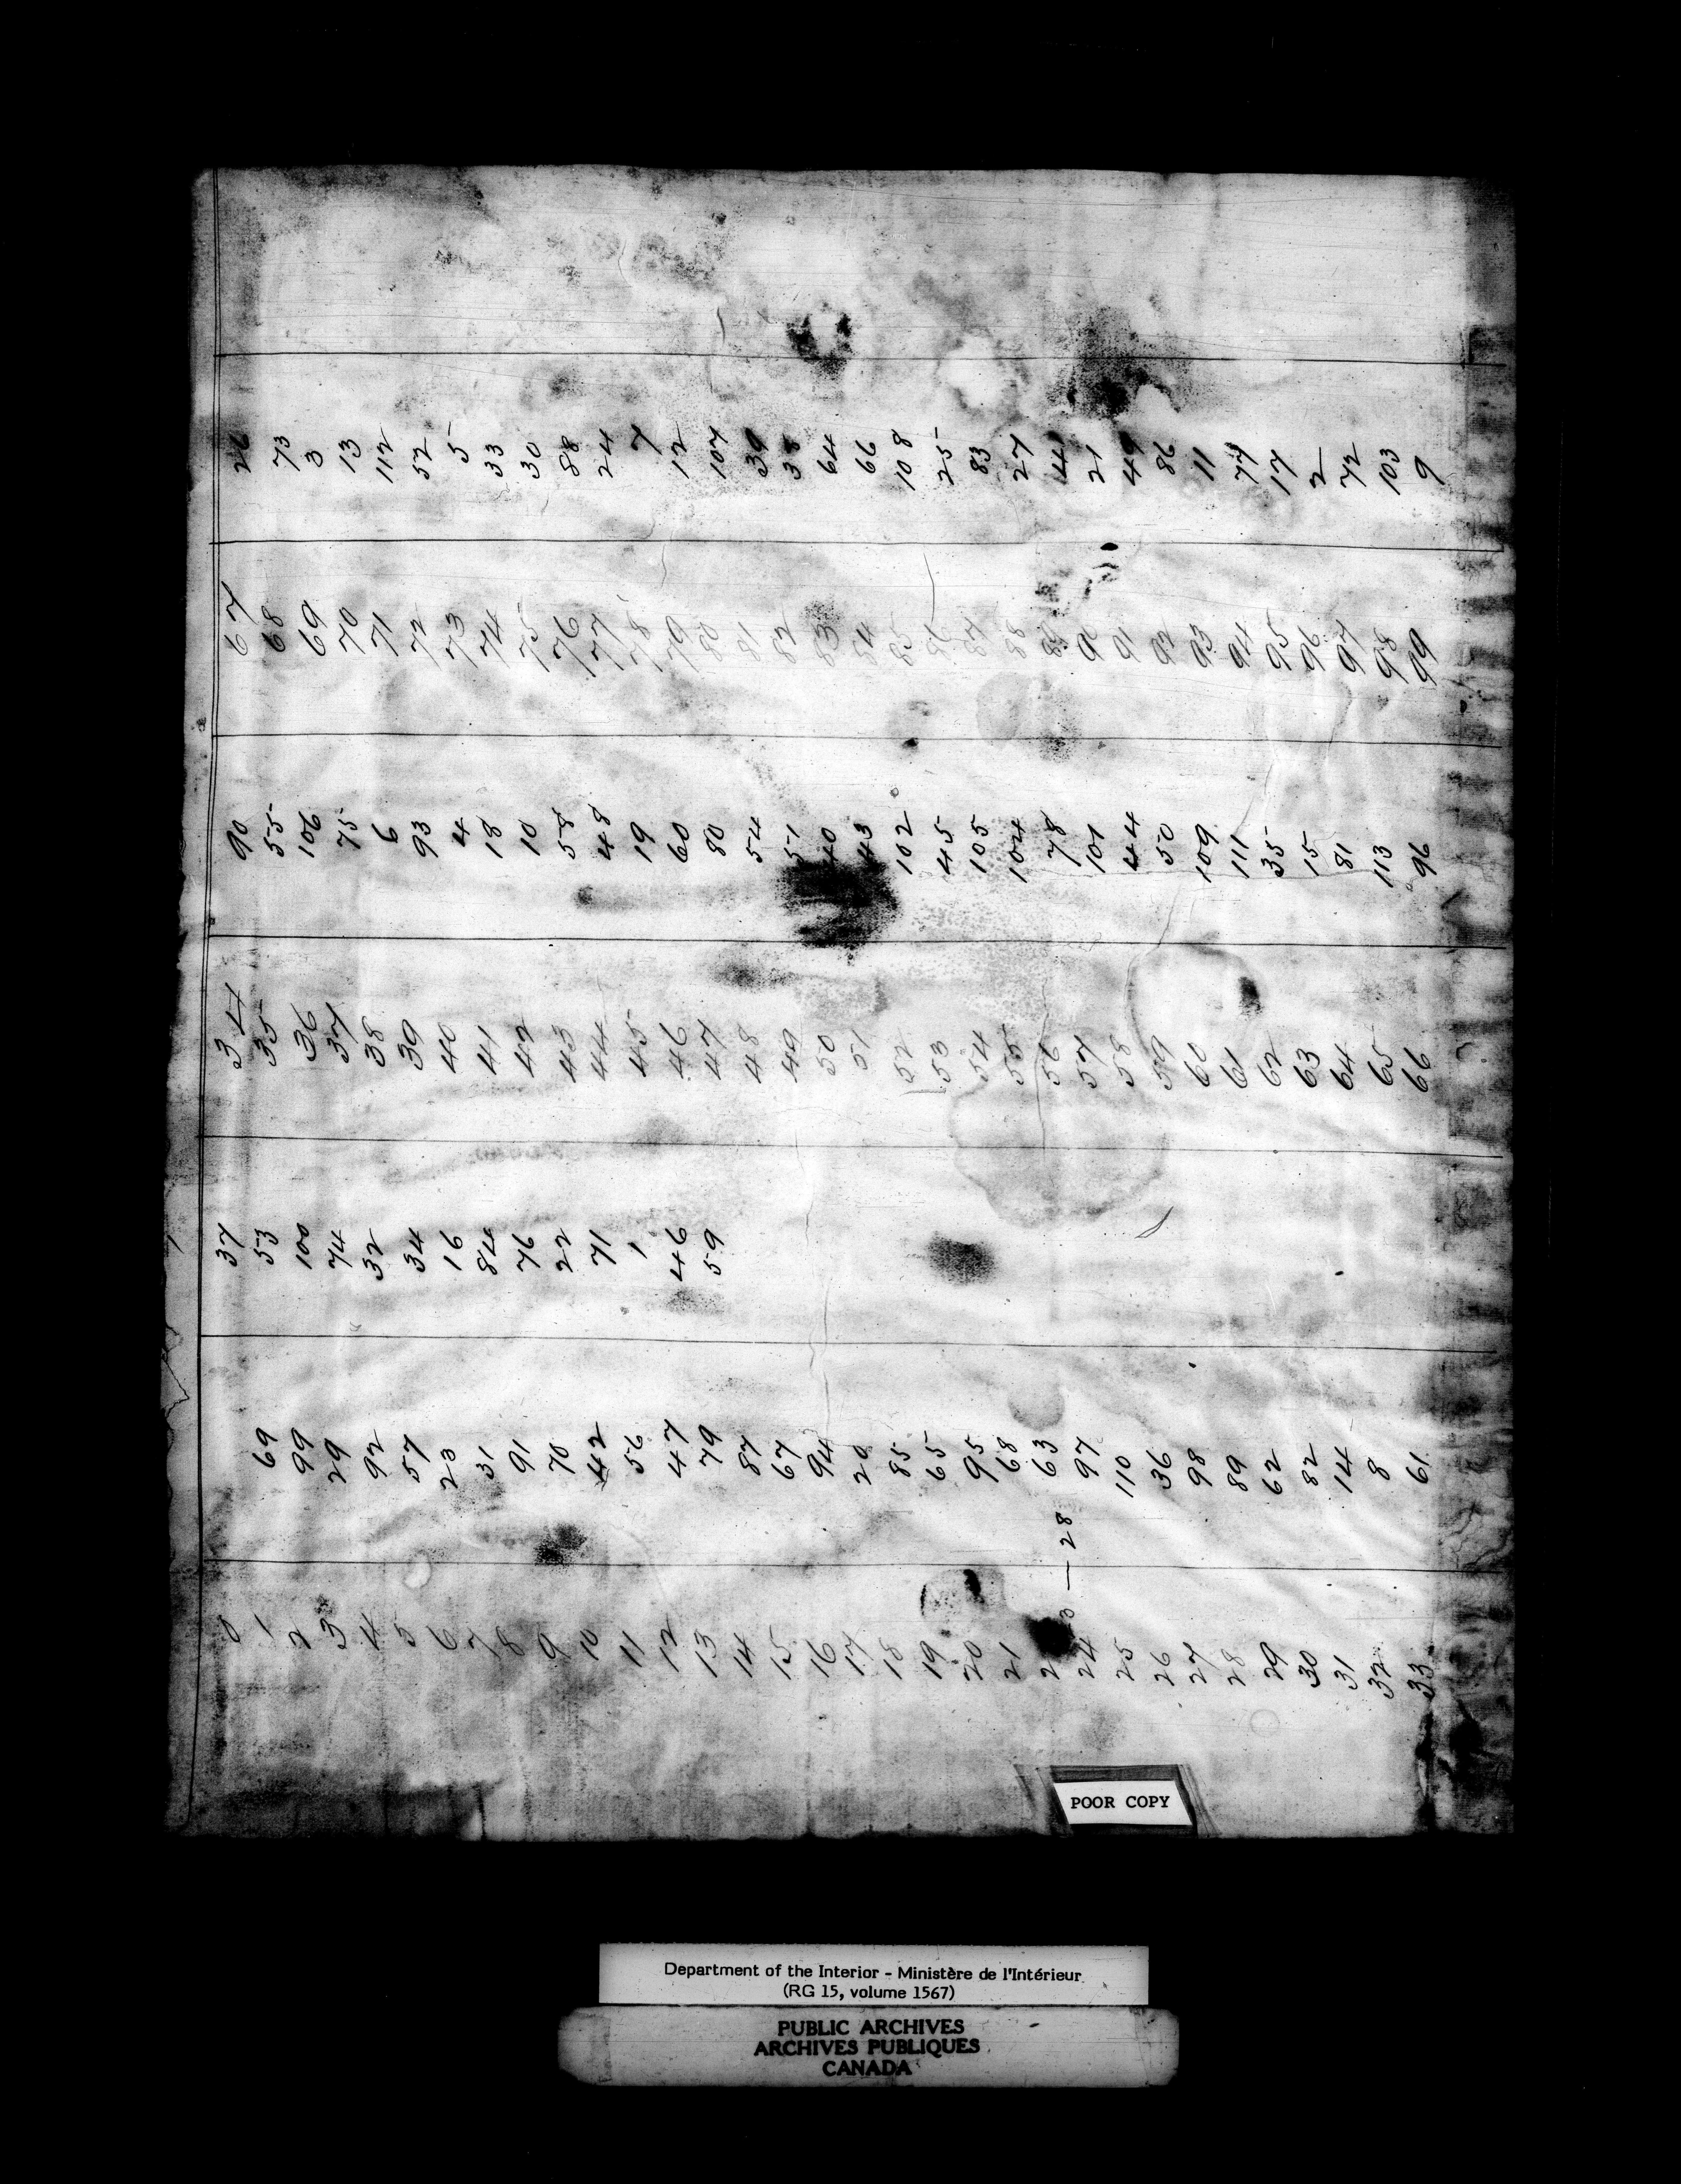 0 37 34 90 67 26
1 69 53 35 55 68 73
2 99 100 36 106 69 3
3 29 74 37 75 70 13
4 92 32 38 6 71 112
5 57 34 39 93 72 52
6 23 16 40 4 73 5
7 31 84 41 18 74 33
8 91 76 42 10 75 30
9 70 22 43 58 76 88
10 42 71 44 48 77 24
11 56 1 45 19 78 7
12 47 46 46 60 79 12
13 79 59 47 80 80 107
14 87 48 54 81 39
15 67 49 51 82 38
16 94 50 40 83 64
17 20 51 43 84 66
18 85 52 102 85 108
19 65 53 45 86 25
20 95 54 105 87 83
21 68 55 104 88 27
2 63 56 78 89 41
3 — 28
24 97 57 101 90 21
25 110 58 44 91 49
26 36 59 50 92 86
27 98 60 109 93 11
28 89 61 111 94 77
29 62 62 35 95 17
30 82 63 15 96 2
31 14 64 81 97 72
32 8 65 113 98 103
33 61 66 96 99 9
POOR COPY
Department of the Interior - Ministère de l'Intérieur
(RG 15, volume 1567)
PUBLIC ARCHIVES
ARCHIVES PUBLIQUES
CANADA